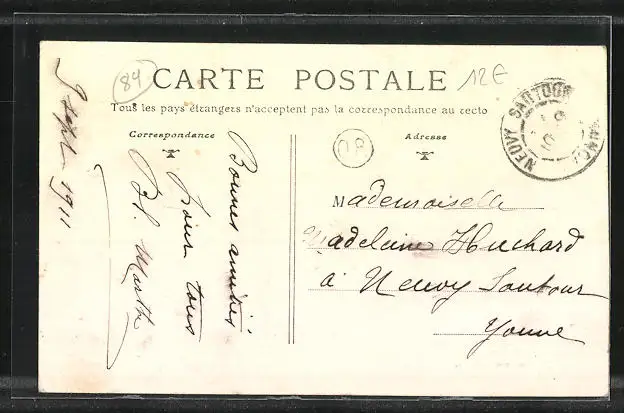 84
CARTE POSTALE
12€
Tous les pays étrangers n'acceptent pas la correspondance au recto
Correspondance
Adresse
NEUVY SAUTOUR
9 Sept 1911
Bonnes amitiés
pour tous
Bl. Marthe
Mademoiselle
Madeleine Huchard
à Neuvy Sautour
Yonne